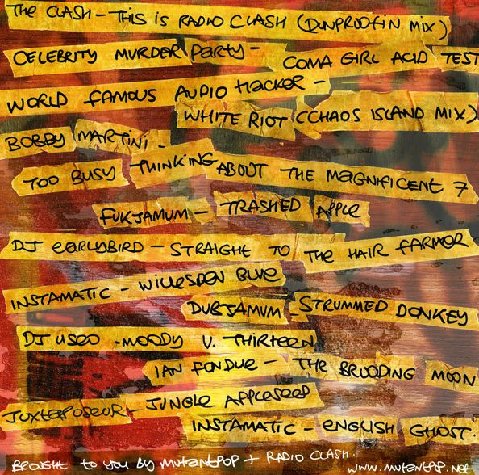 THE CLASH - THIS IS RADIO CLASH (DUNPROOFIN MIX)
CELEBRITY MURDER PARTY - COMA GIRL ACID TEST
WORLD FAMOUS AUDIO HACKER -
WHITE RIOT (CHAOS ISLAND MIX)
BOBBY MARTINI -
TOO BUSY THINKING ABOUT THE MAGNIFICENT 7
FUKJAMUM - TRASHED APPLE
DJ EARLYBIRD - STRAIGHT TO THE HAIR FARMER
INSTAMATIC - WILLESDEN BLUE
DUBJAMUM STRUMMED DONKEY
DJ USEO - MOODY V. THIRTEEN
IAN FONDUE - THE BROODING MOON
JUXTAPOSEUR - JUNGLE APPLESEED
INSTAMATIC - ENGLISH GHOST.
BROUGHT TO YOU BY MUTANTPOP + RADIO CLASH.
WWW.MUTANTPOP.NET